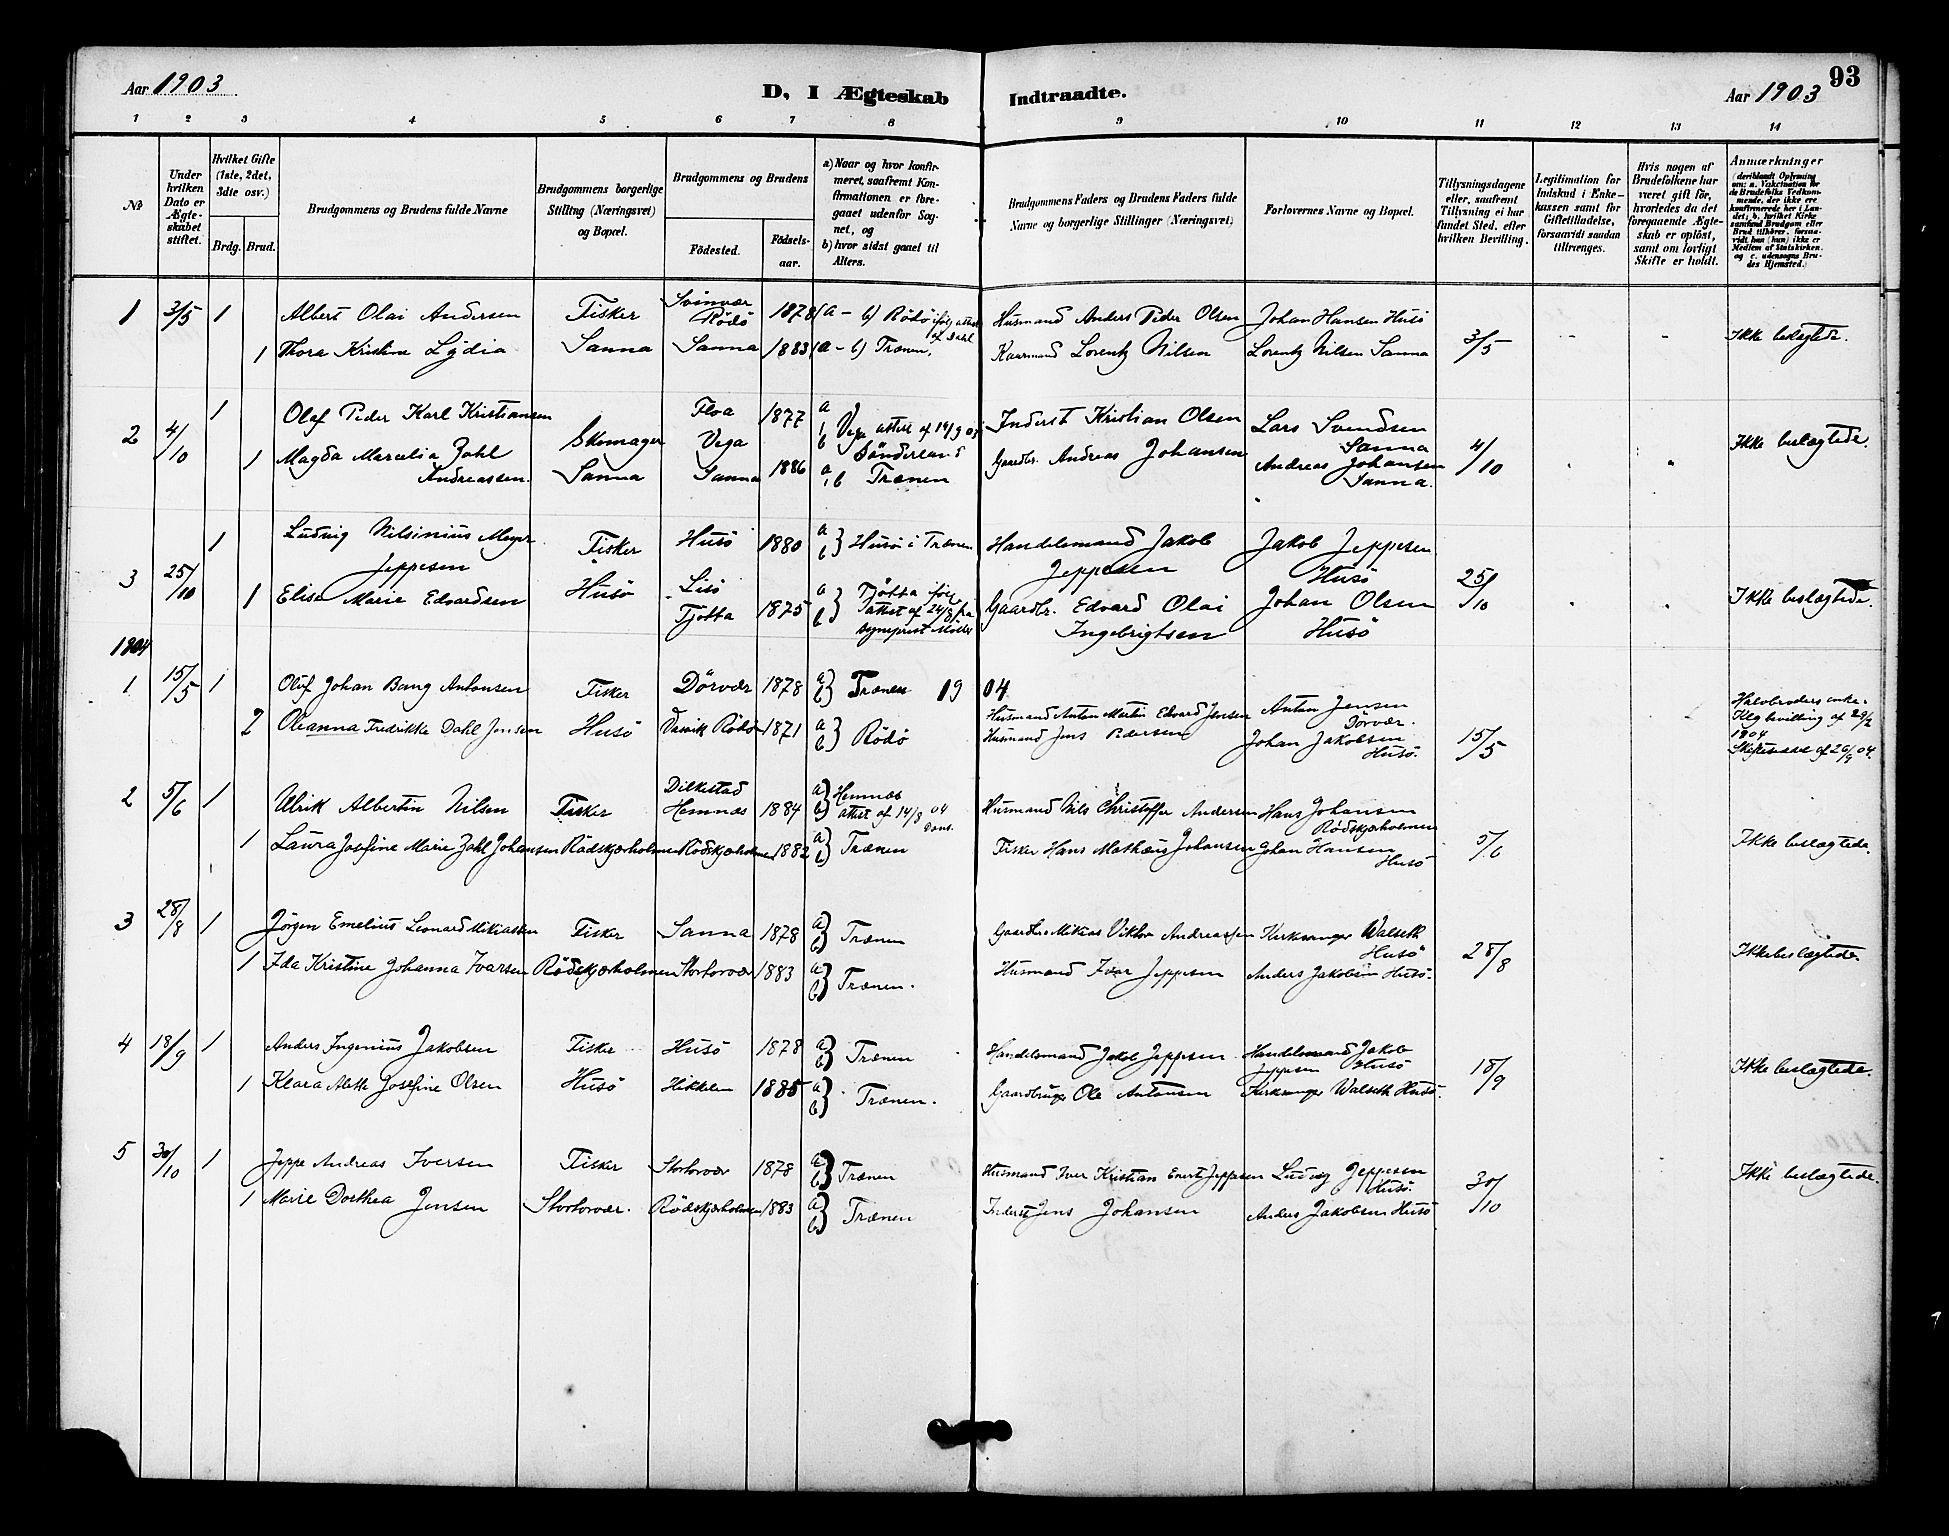 Aar 1903
D, I Ægteskab Indtraadte.
Aar 1903
93
1 2 3 4 5 6 7 8 9 10 11 12 13 14
No
Under hvilken Dato er Ægte-skabet stiftet.
Hvilket Gifte (1ste, 2det, 3die osv.)
Brdg. Brud.
Brudgommens og Brudens fulde Navne
Brudgommens borgerlige Stilling (Næringsvei) og Bopæl.
Brudgommens og Brudens
Fødested.
Fødsels-aar.
a) Naar og hvor konfir-
meret, saafremt Kon-
firmationen er fore-
gaaet udenfor Sog-
net, og
b) hvor sidst gaaet til
Alters.
Brudgommens Faders og Brudens Faders fulde
Navne og borgerlige Stillinger (Næringsvei)
Forlovernes Navne og Bopæl.
Tillysningsdagene
eller, saafremt
Tillysning ei har
fundet Sted, efter
hvilken Bevilling.
Legitimation for
Indskud i Enke-
kassen samt for
Giftetilladelse,
forsaavidt saadan
tiltrænges.
Hvis nogen af
Brudefolkene har
været gift før,
hvorledes da det
foregaaende Ægte-
skab er opløst,
samt om lovligt
Skifte er holdt.
Anmærkninger
(deriblandt Oplysning
om: a. Vakcination for
de Brudefolks Vedkom-
mende, der ikke ere
konfirmerede her i Lan-
det; b. hvilket Kirke
samfund Brudgom eller
Brud tilhører, forsaa-
vidt han (hun) ikke er
Medlem af Statskirken
og c. udensogns Bru-
des Hjemsted.)
1 3/5 1 Albert Olai Andersen Fisker Svinvær Rödö 1878 (a – b) Rödö ifølg attest af Dahl Husmand Anders Peder Olsen Johan Hansen Husö
1 Thora Kristine Lydia Sanna Sanna 1883 (a – b) Trænen, Lorentz Nilsen Lorentz Nilsen Sanna 3/5 - - Ikke beslægtede.
2 4/10 1 Olaf Peder Karl Kristiansen Skomager Floa Vega 1877 a b Vega attest af 14/9 03 Sönderland Inderst Kristian Olsen Lars Svendsen Sanna
1 Magda Marcelia Zahl Andreassen. Sanna Sanna 1886 a b Trænen Gaardbr. Andreas Johansen Andreas Johansen Sanna. 4/10 Ikke beslægtede.
3 25/10 1 Ludvig Nilsinius Meyer Jeppesen Fisker Husö 1880 a b } Husö i Trænen Handelsmand Jakob Jeppesen Jakob Jeppesen Husö
1 Elise Marie Edvardsen Husö Tjøtta 1875 a b } Tjøtta ifølg. attest af 24/8 fra Gaardbr. Edvard Olai Ingebrigtsen Johan Olsen Husö 25/10 Ikke beslægtede.
1904
1 15/5 1 Oluf Johan Bang Antonsen Fisker Dörvær 1878 a b } Trænen 1904 Husmand Anton Martin Edvard Jensen Anton Jensen Dörvær.
2 Oleanna Fredrikke Dahl Jensen Husö Rödö 1871 a b } Rödö Husmand Jens Pedersen Johan Jakobsen Husö. 15/5 Halvbroders enke. Klg bevilling af 29/2 1904
2 5/6 1 Ulrik Albertin Nilsen Fisker Dilkestad Hemnæs 1884 a b } Hemnæs attest af 14/8 04 Husmand Nils Christoffer Andersen Hans Johansen Rødskjærholmen
1 Laura Josefine Marie Zahl Johansen Rödskjærholmen Rødskjærholmen 1882 a b } Trænen Fisker Hans Mathæus Johansen Johan Hansen Husö 5/6 Ikke beslægtede.
3 28/8 1 Jørgen Emelius Leonard Mikiassen Fisker Sanna 1878 a b } Trænen Gaardbr. Mikias Viktor Andreassen Kirkesanger Walseth Husö
1 Ida Kristine Johanna Ivarsen Rödskjærholmen Stortorvær 1883 a b } Trænen. Husmand Ivar Jeppesen Anders Jakobsen Husö. 28/8 Ikke beslægtede.
4 18/9 1 Anders Ingenius Jakobsen Fisker Husö 1878 a b } Trænen Handelsmand Jakob Jeppesen Handelsmand Jakob Jeppesen Husö
1 Klara Alette Josefine Olsen Husö Hikkelen 1885 a b } Trænen. Gaardbruger Ole Antonsen Kirkesanger Walseth Husö. 18/9 Ikke beslægtede.
5 30/10 1 Jeppe Andreas Iversen Fisker Stortorvær 1878 a b } Trænen Husmand Iver Kristian Enert Jeppesen Ludvig Jeppesen Husö.
1 Marie Dorthea Jensen Stortorvær. Rödskjærholmen 1883 a b } Trænen Inderst Jens Johansen Anders Jakobsen Husö 30/10 Ikke beslægtede.